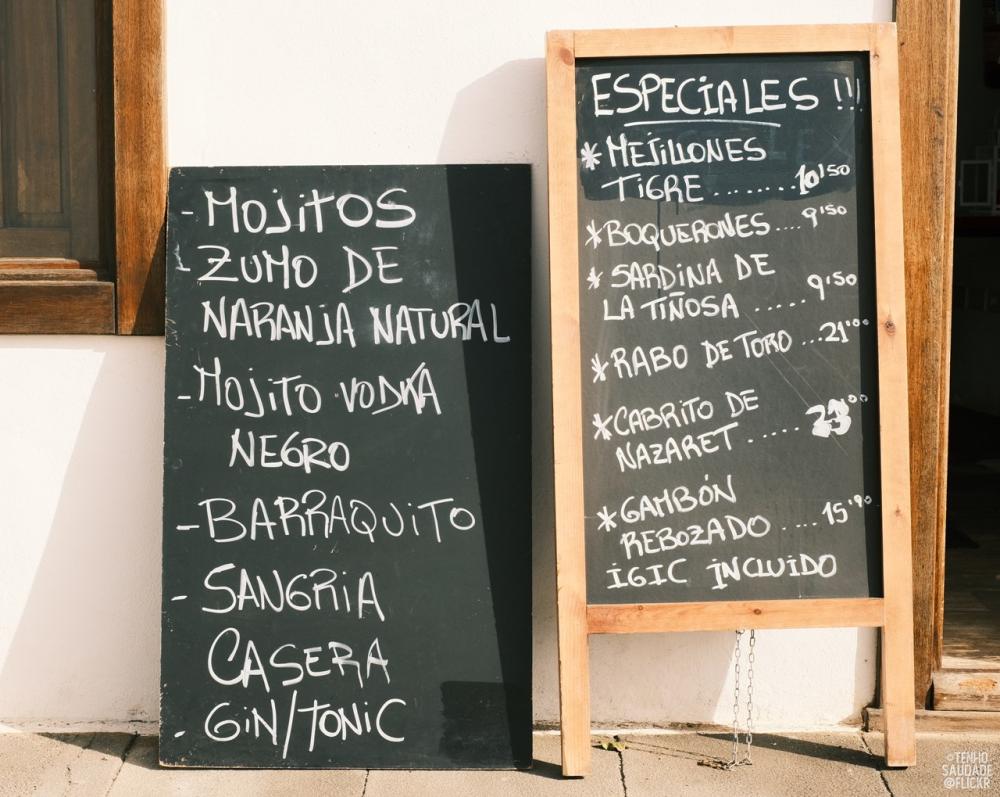 - MOJITOS
- ZUMO DE
NARANJA NATURAL
- MOJITO VODKA
NEGRO
- BARRAQUITO
- SANGRIA
CASERA
- GIN/TONIC
ESPECIALES !!!
* MEJILLONES
TIGRE ........ 10'50
* BOQUERONES .... 9'50
* SARDINA DE
LA TIÑOSA ...... 9'50
* RABO DE TORO ... 21'00
* CABRITO DE
NAZARET ...... 23'00
* GAMBÓN
REBOZADO ..... 15'90
IGIC INCLUIDO
©TENHO
SAUDADE
@FLICKR